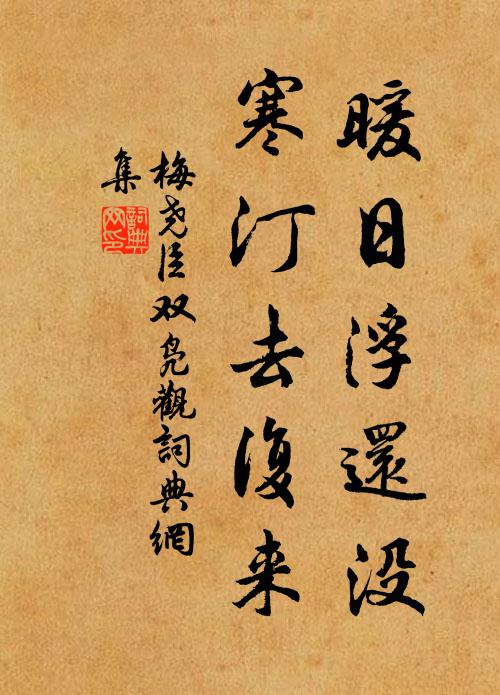 暖日浮還没
寒汀去復来
梅尧臣双凫觀詞典網
集
詞典网印